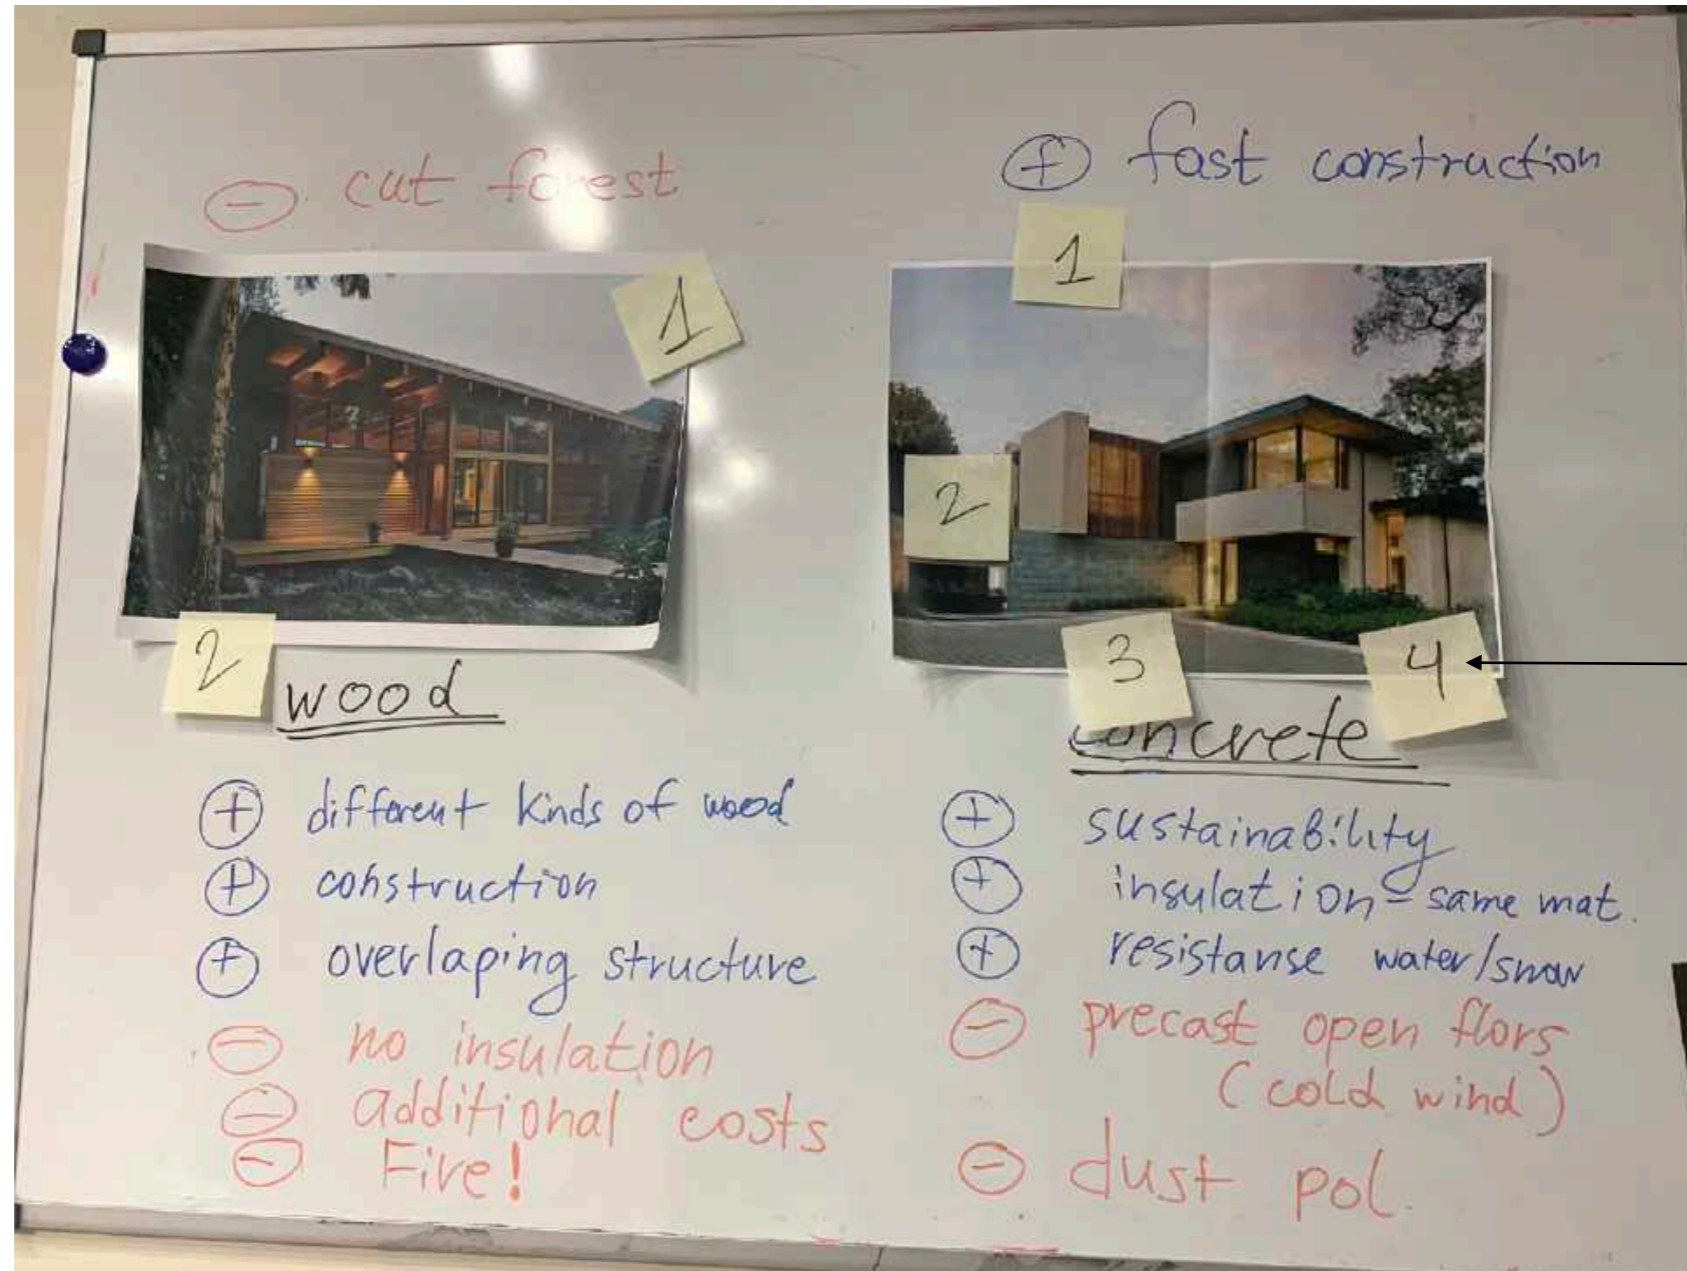 ⊖ cut forest
1
2
wood
⊕ different kinds of wood
⊕ construction
⊕ overlaping structure
⊖ no insulation
⊖ additional costs
⊖ Fire!
⊕ fast construction
1
2
3
4
concrete
⊕ sustainability
⊕ insulation - same mat.
⊕ resistanse water/snow
⊖ precast open flors
(cold wind)
⊖ dust pol.